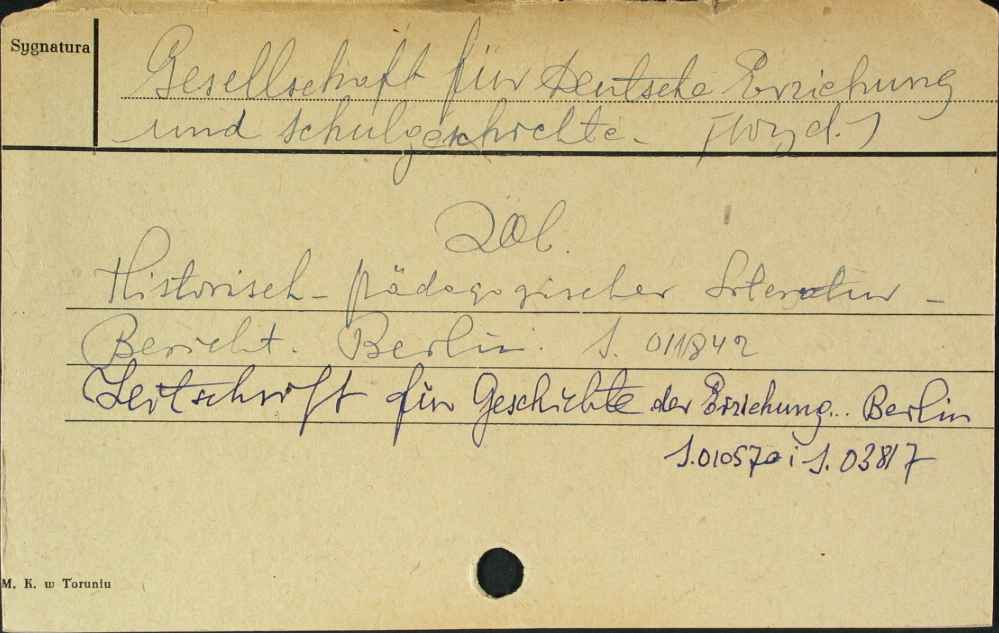 Sygnatura
Gesellschaft für Deutsche Erziehung
und Schulgeschichte. [Wyd.]
Zob.
Historisch-Pädagogischer Literatur-
Bericht. Berlin. S. 011842
Zeitschrift für Geschichte der Erziehung... Berlin
S. 010570 i S. 03817
M. K. w Toruniu